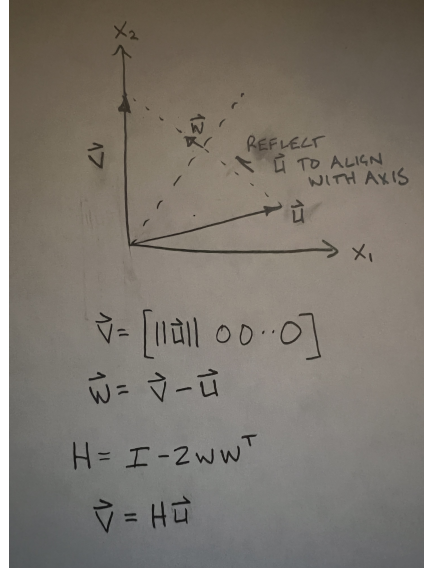 X₂
w⃗
REFLECT
u⃗ TO ALIGN
WITH AXIS
v⃗
u⃗
X₁
v⃗ = [||u⃗|| 0 0 ·· 0]
w⃗ = v⃗ - u⃗
H = I - 2wwᵀ
v⃗ = Hu⃗